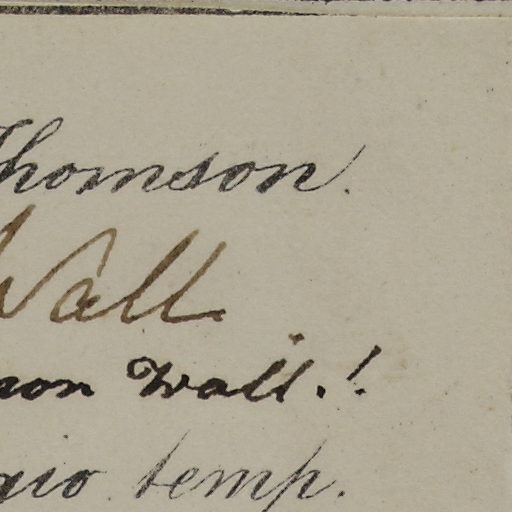 Thomson.
Wall
son Wall.!
gio temp.